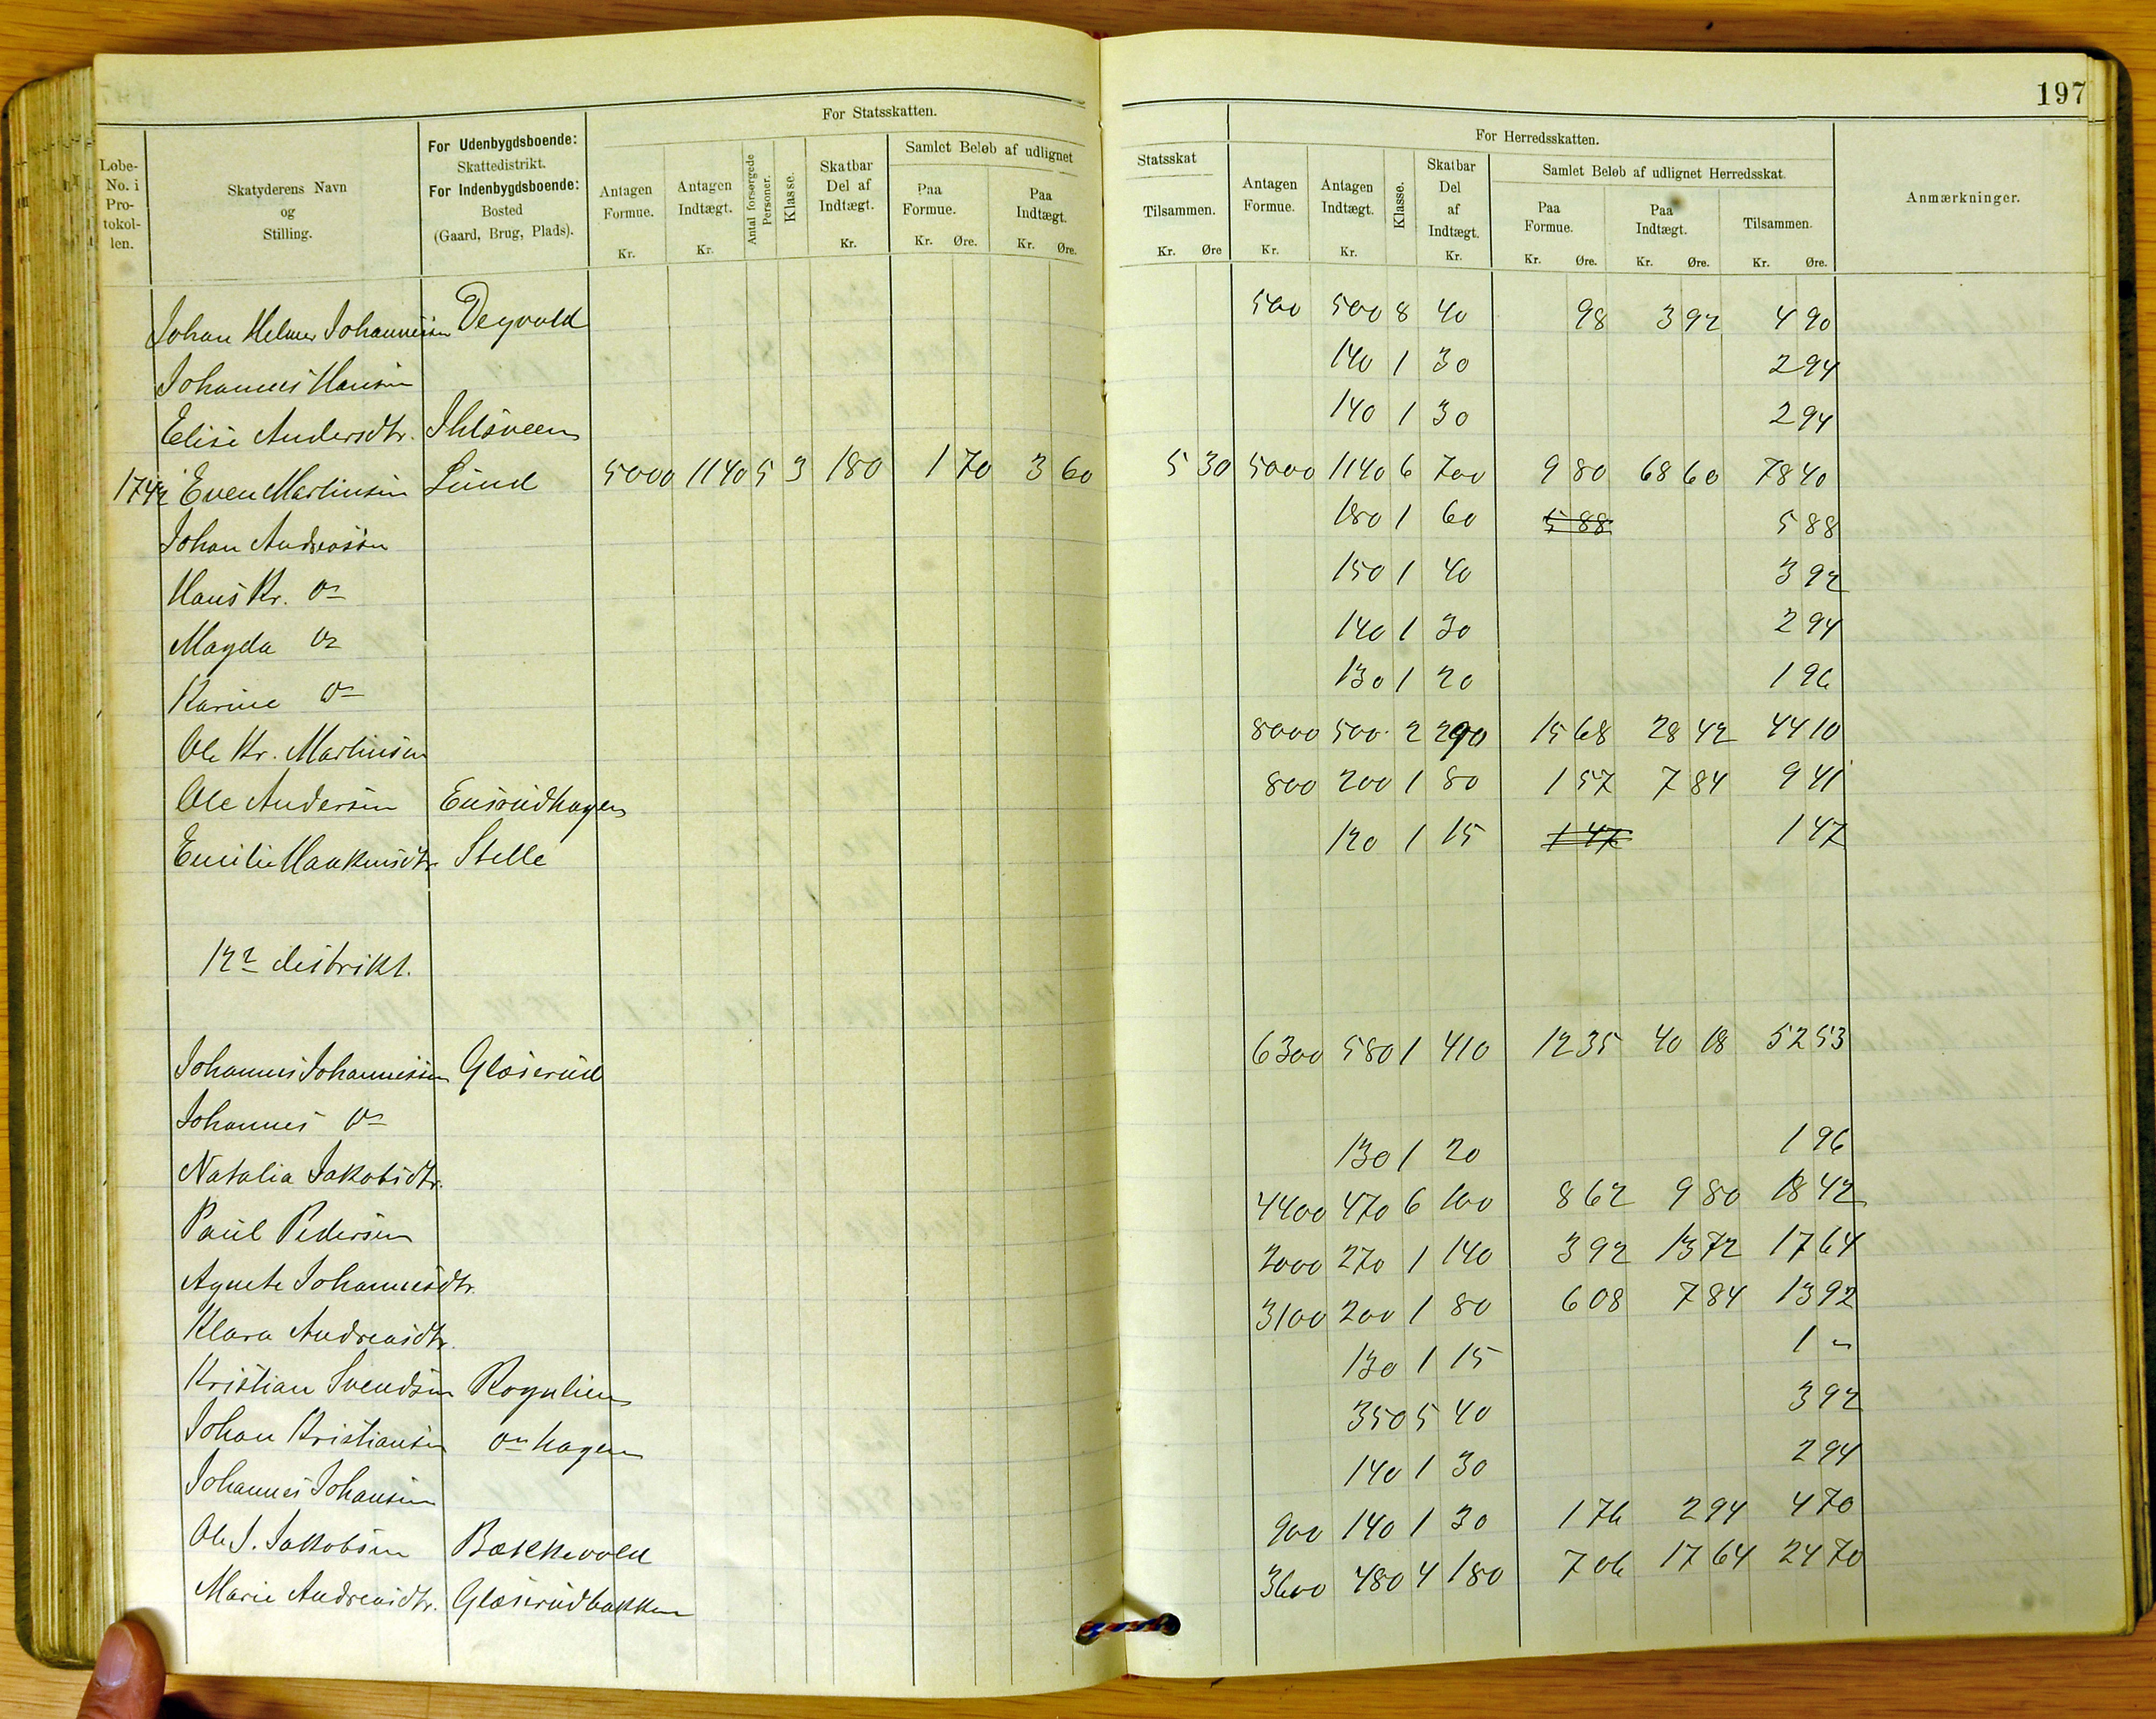 197
Løbe-No. i Protokollen.
Skatyderens Navn og Stilling.
For Udenbygdsboende: Skattedistrikt. For Indenbygdsboende: Bosted (Gaard, Brug, Plads).
For Statsskatten.
Antagen Formue. Kr.
Antagen Indtægt. Kr.
Antal forsørgede Personer.
Klasse.
Skatbar Del af Indtægt. Kr.
Samlet Beløb af udlignet
Paa Formue. Kr. Øre.
Paa Indtægt. Kr. Øre.
Statsskat
Tilsammen. Kr. Øre
For Herredsskatten.
Antagen Formue. Kr.
Antagen Indtægt. Kr.
Klasse.
Skatbar Del af Indtægt. Kr.
Samlet Beløb af udlignet Herredsskat.
Paa Formue. Kr. Øre.
Paa Indtægt. Kr. Øre.
Tilsammen. Kr. Øre.
Anmærkninger.
Johan Helmer Johannessen Degvold 500 500 8 40 98 3 92 4 90
Johannes Hansen 140 1 30 2 94
Elise Andersdtr. Ihlsveen 140 1 30 2 94
1742 Even Martinsen Lund 5000 1140 5 3 180 1 70 3 60 5 30 5000 1140 6 700 9 80 68 60 78 40
Johan Andreassen 180 1 60 5 88 5 88
Hans Kr. do 150 1 40 3 92
Magda do 140 1 30 2 94
Karine do 130 1 20 1 96
Ole Kr. Martinsen 8000 500 2 290 15 68 28 42 44 10
Ole Andersen Ensrudhagen 800 200 1 80 1 57 7 84 9 41
Emilie Haakensdtr. Stelle 120 1 15 1 47 1 47
12te distrikt.
Johannes Johannessen Glæserud 6300 580 1 410 12 35 40 18 52 53
Johannes do
Natalia Jakobsdtr. 130 1 20 1 96
Paul Pedersen 4400 470 6 100 8 62 9 80 18 42
Agnete Johannesdtr. 2000 270 1 140 3 92 13 72 17 64
Klara Andreasdtr. 3100 200 1 80 6 08 7 84 13 92
Kristian Svendsen Rognlien 130 1 15 1 "
Johan Kristiansen do hagen 350 5 40 3 92
Johannes Johansen 140 1 30 2 94
Ole J. Jakobsen Bækkevold 900 140 1 30 1 76 2 94 4 70
Marie Andreasdtr. Glæserudbakken 3600 480 4 180 7 06 17 64 24 70